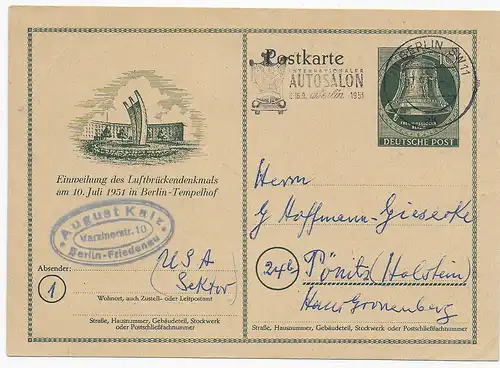 Postkarte
INTERNATIONALER
AUTOSALON
Berlin 1951
BERLIN SW 11
DEUTSCHE POST
Einweihung des Luftbrückendenkmals
am 10. Juli 1951 in Berlin-Tempelhof
August Katz
Varzinerstr. 10
Berlin-Friedenau
Absender:
1
USA
(Sektor)
Wohnort, auch Zustell- oder Leitpostamt
Straße, Hausnummer, Gebäudeteil, Stockwerk
oder Postschließfachnummer
Herrn
G Hoffmann-Giesecke
24b
Pönitz (Holstein)
Haus Gronenberg
Straße, Hausnummer, Gebäudeteil, Stockwerk oder Postschließfachnummer